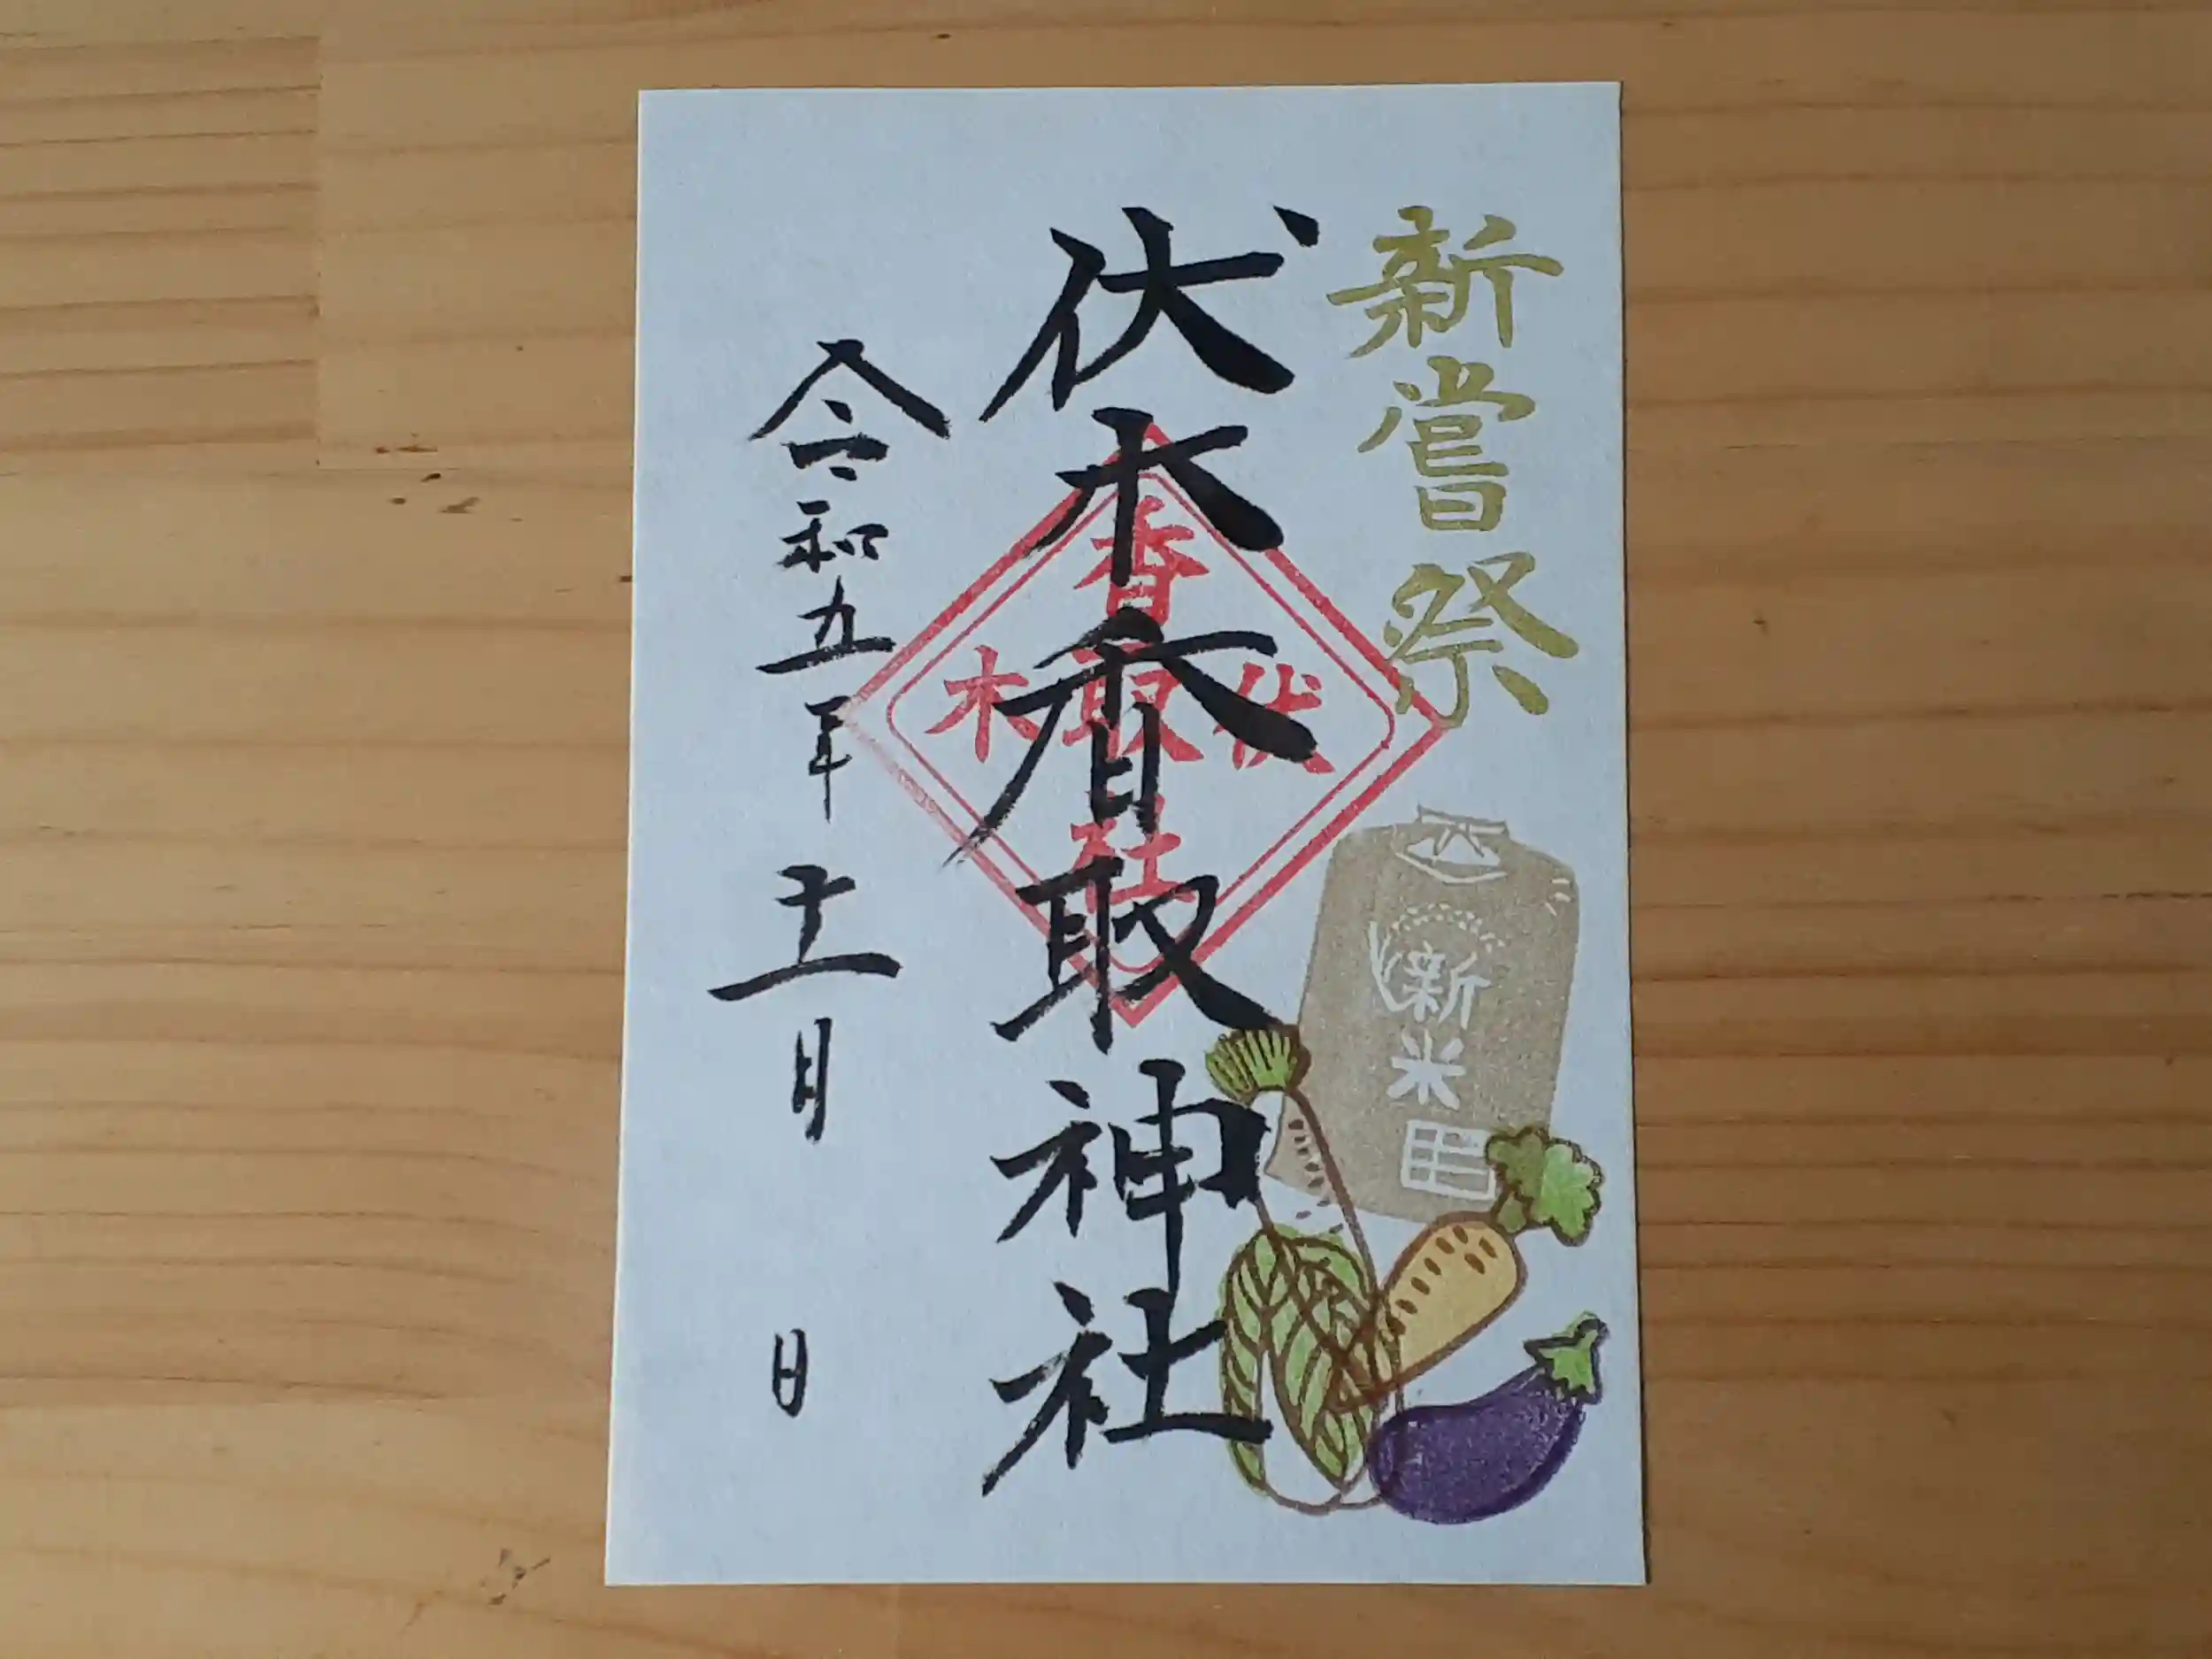 新嘗祭
新米
伏木香取神社
香取社
伏木
令和五年十一月 日